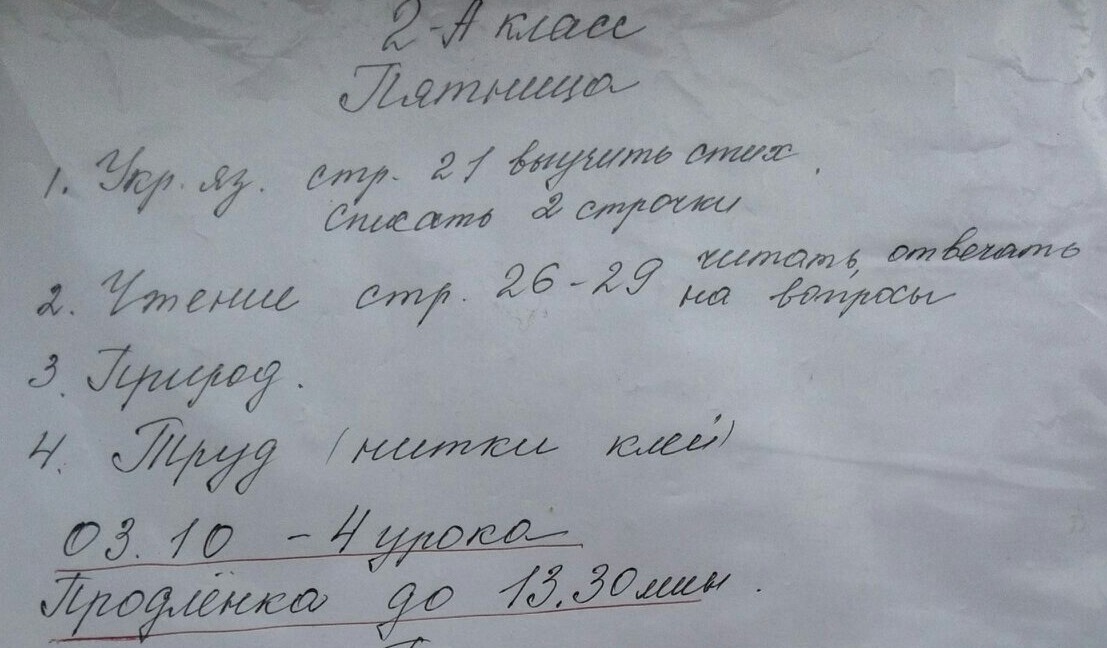 2-А класс
Пятница
1. Укр. яз. стр. 21 выучить стих.
Списать 2 строчки
2. Чтение стр. 26-29 читать, отвечать
на вопросы
3. Природ.
4. Труд (нитки клей)
03.10 - 4 урока
Продлёнка до 13.30 мин.